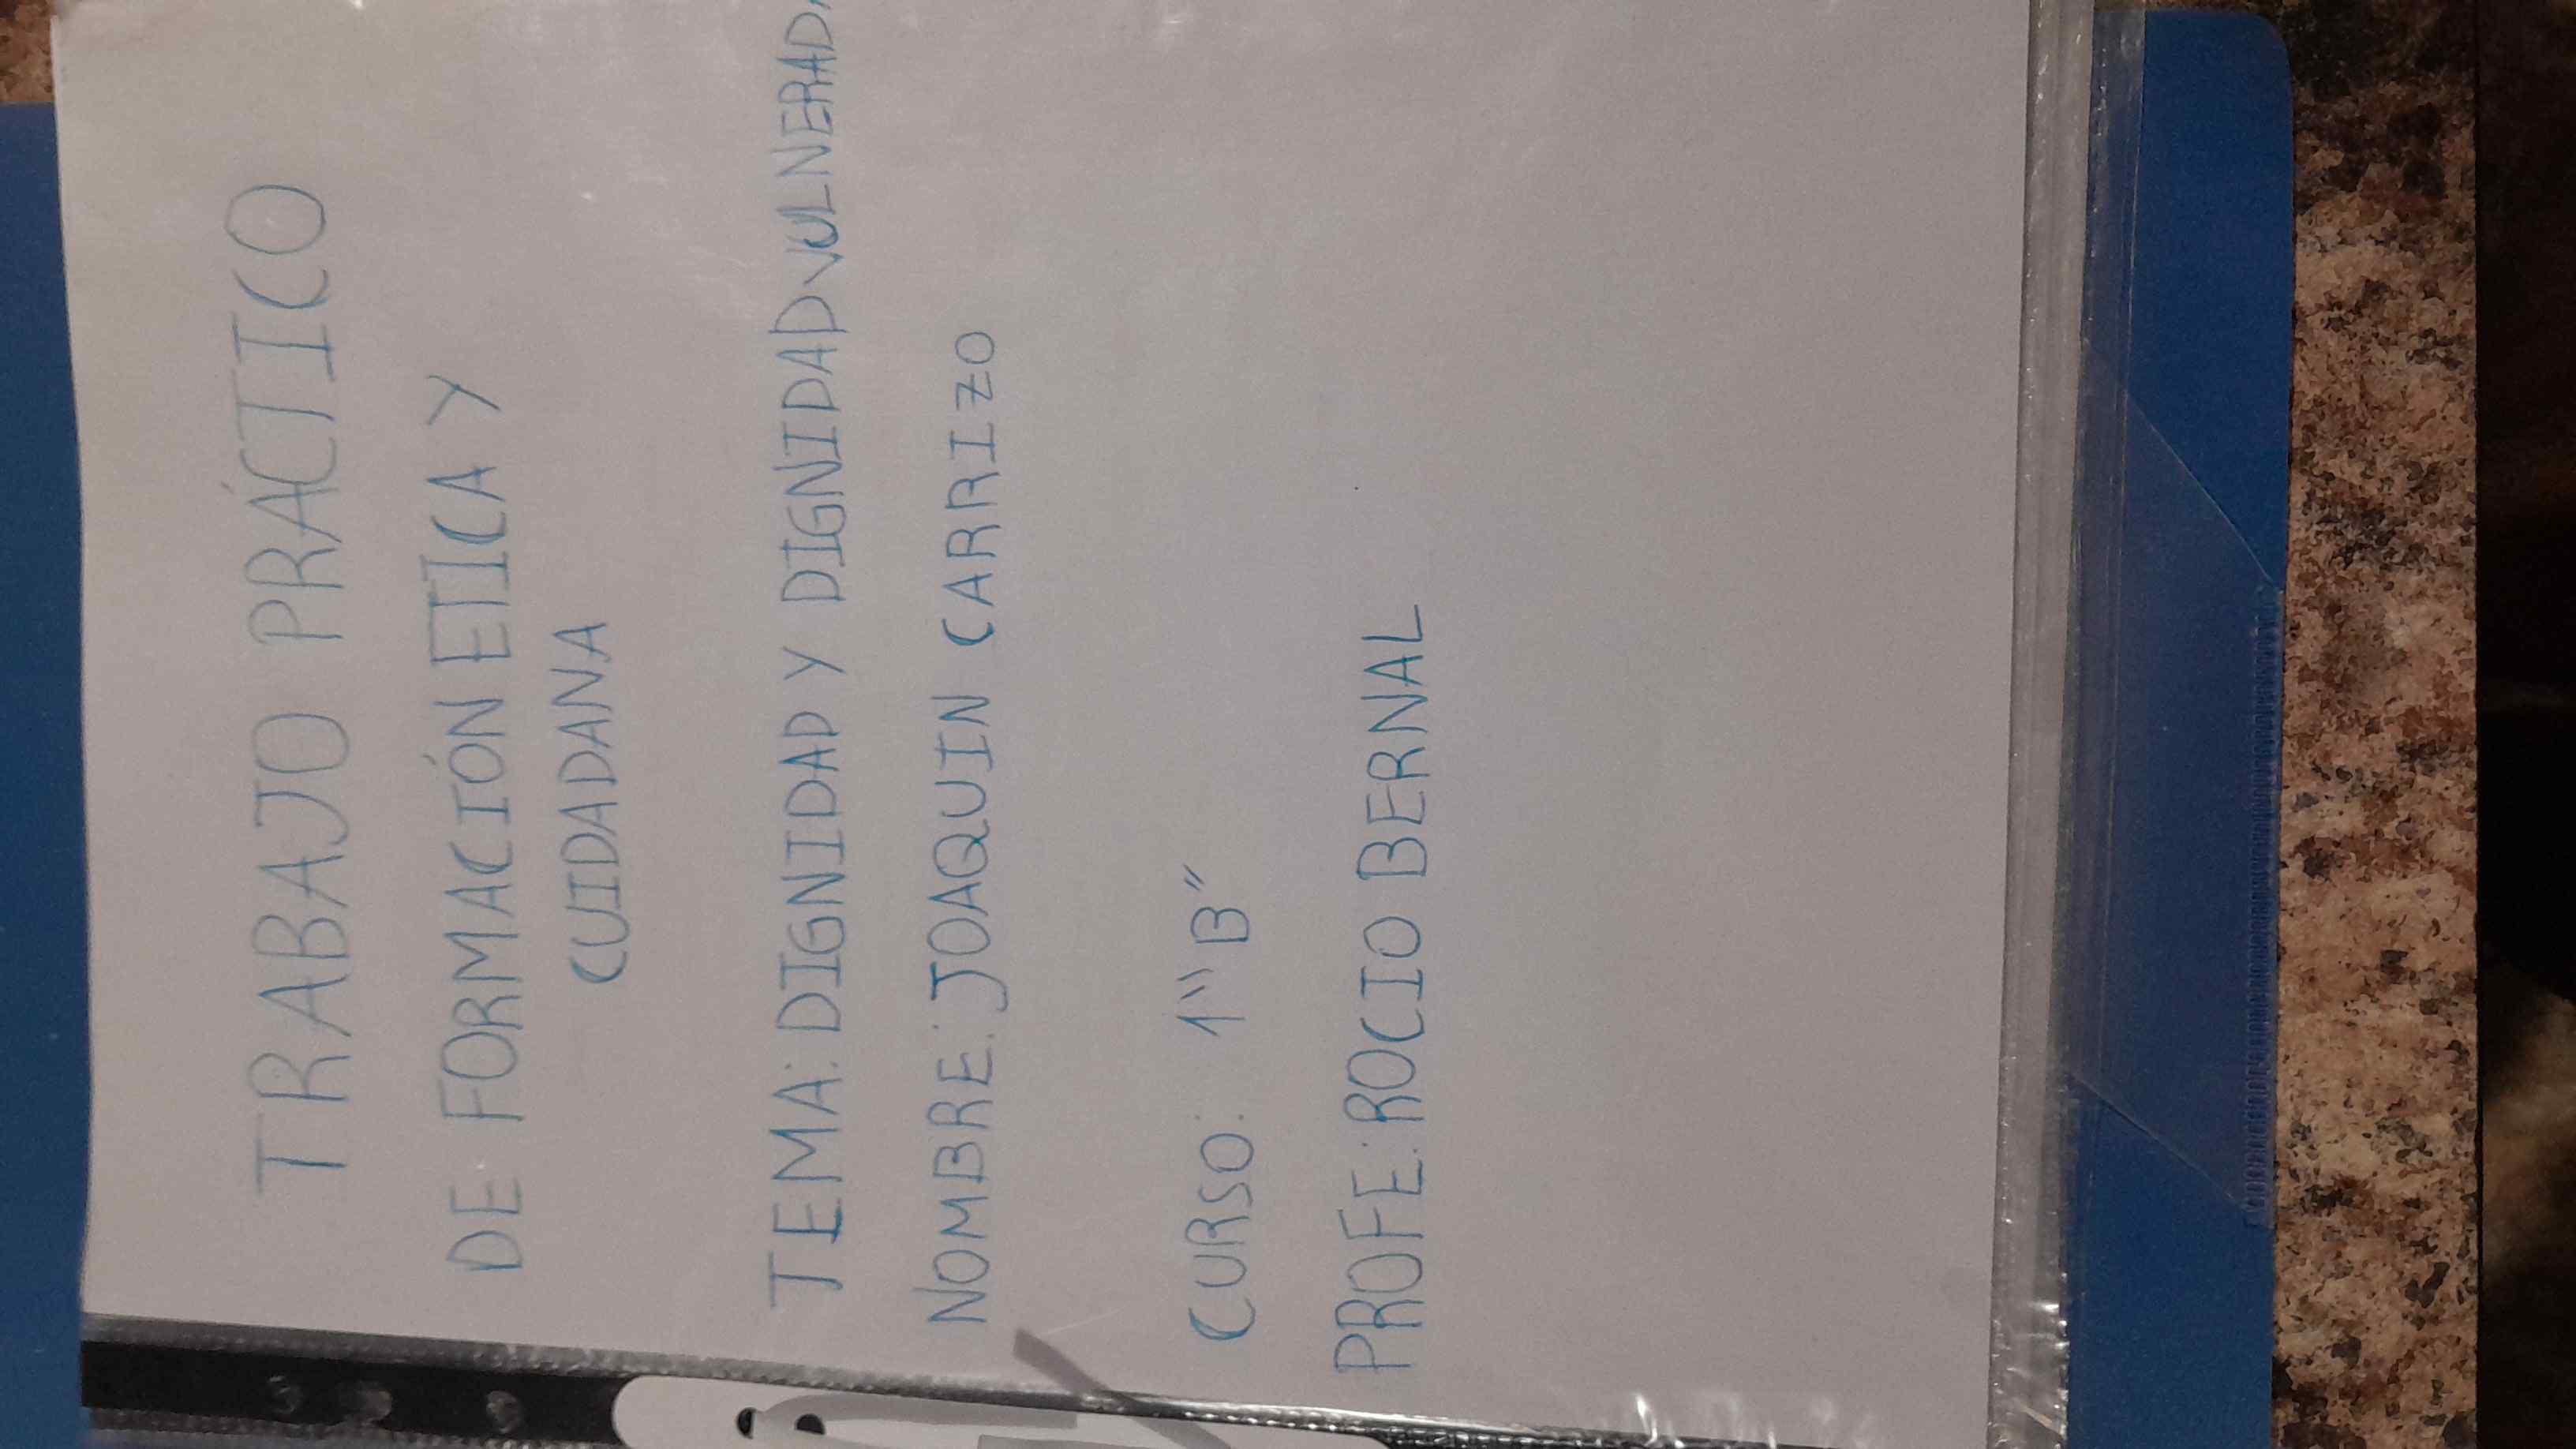 TRABAJO PRÁCTICO
DE FORMACIÓN ETICA Y
CUIDADANA
TEMA: DIGNIDAD Y DIGNIDAD VULNERADA
NOMBRE: JOAQUIN CARRIZO
CURSO: 1 "B"
PROFE: ROCIO BERNAL